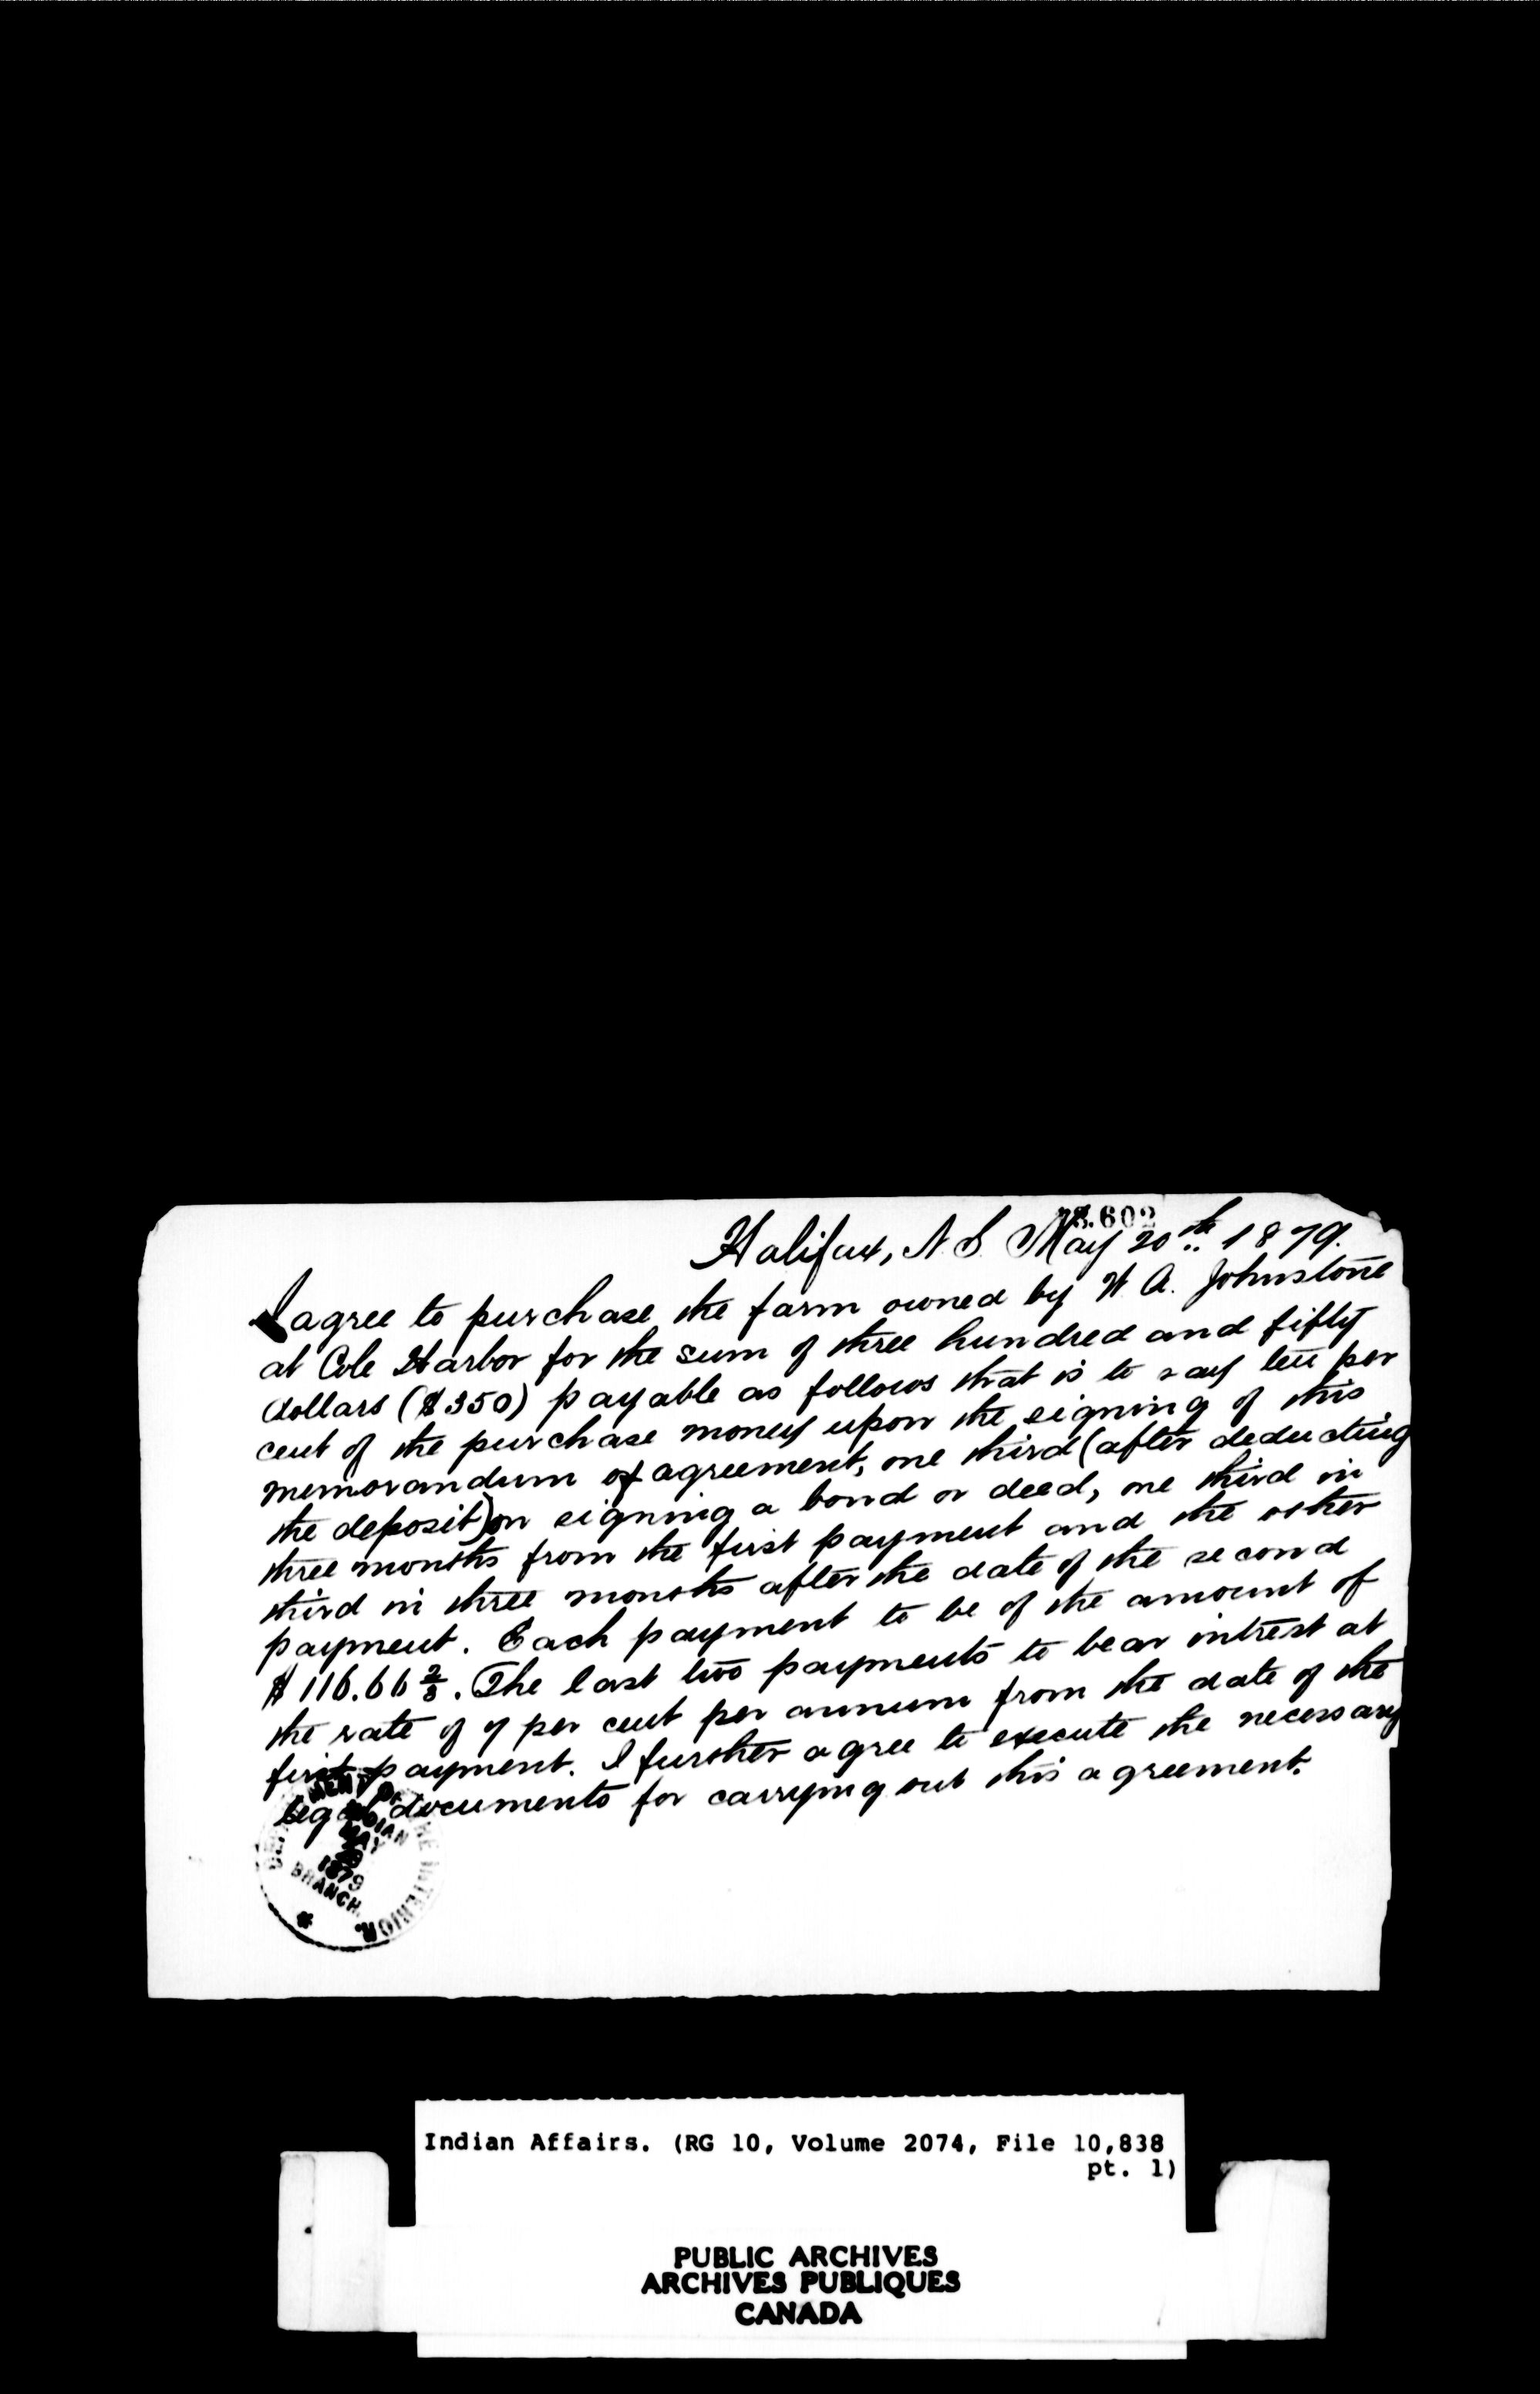 Halifax, N.S. May 20th 1879.
I agree to purchase the farm owned by W A. Johnstone
at Cole Harbor for the sum of three hundred and fifty
dollars ($350) payable as follows that is to say ten per
cent of the purchase money upon the signing of this
memorandum of agreement, one third (after deducting
the deposit) on signing a bond or deed, one third in
three months from the first payment and the other
third in three months after the date of the second
payment. Each payment to be of the amount of
$116.66 2/3. The last two payments to bear intrest at
the rate of 7 per cent per annum from the date of the
first payment. I further agree to execute the necessary
legal documents for carrying out this agreement.
INDIAN
MAY
1879
BRANCH.
THE INTERIOR.
Indian Affairs. (RG 10, Volume 2074, File 10,838
pt. 1)
PUBLIC ARCHIVES
ARCHIVES PUBLIQUES
CANADA